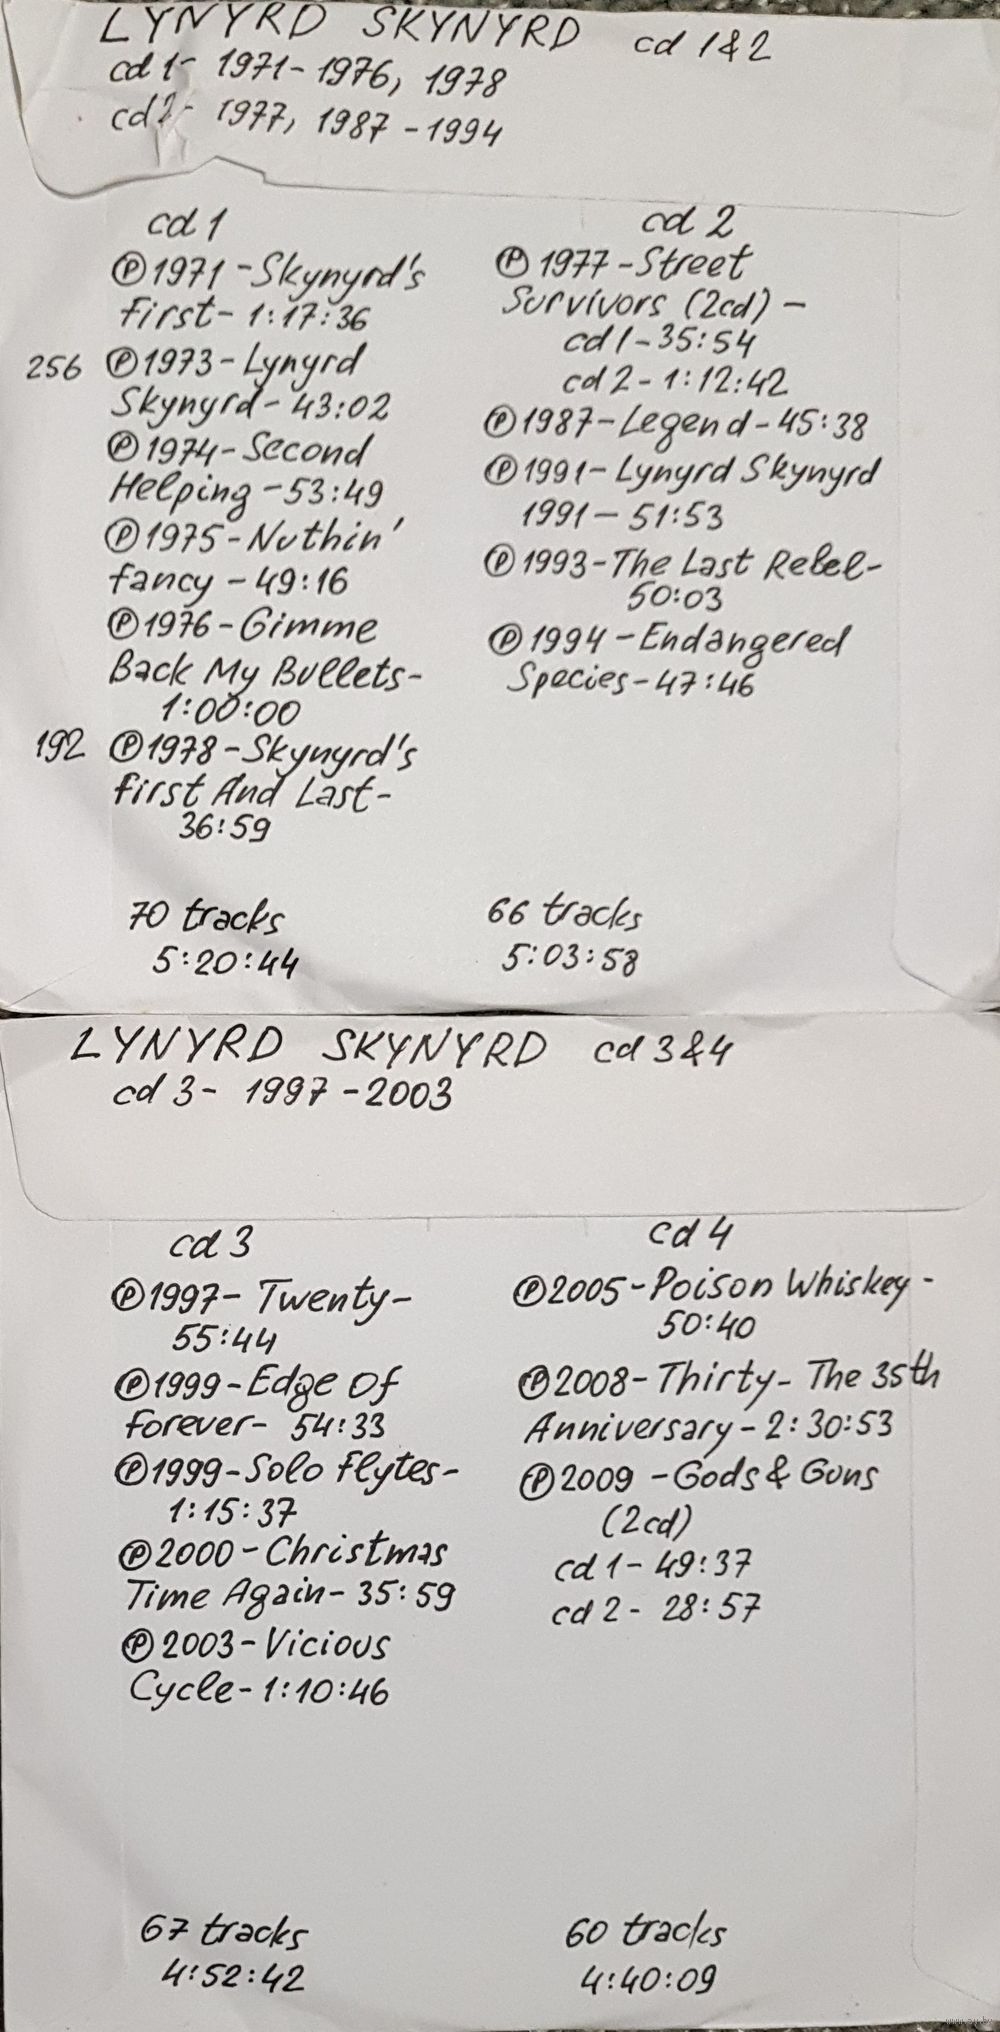 LYNYRD SKYNYRD cd 1&2
cd 1- 1971-1976, 1978
cd 2- 1977, 1987-1994
cd 1
Ⓟ1971-Skynyrd's
First- 1:17:36
256 Ⓟ1973-Lynyrd
Skynyrd-43:02
Ⓟ1974-Second
Helping-53:49
Ⓟ1975-Nuthin'
fancy-49:16
Ⓟ1976-Gimme
Back My Bullets-
1:00:00
192 Ⓟ1978-Skynyrd's
First And Last-
36:59
70 tracks
5:20:44
cd 2
Ⓟ1977-Street
Survivors (2cd)-
cd 1-35:54
cd 2-1:12:42
Ⓟ1987-Legend-45:38
Ⓟ1991-Lynyrd Skynyrd
1991-51:53
Ⓟ1993-The Last Rebel-
50:03
Ⓟ1994-Endangered
Species-47:46
66 tracks
5:03:58
LYNYRD SKYNYRD cd 3&4
cd 3- 1997-2003
cd 3
Ⓟ1997-Twenty-
55:44
Ⓟ1999-Edge Of
forever- 54:33
Ⓟ1999-Solo Flytes-
1:15:37
Ⓟ2000-Christmas
Time Again-35:59
Ⓟ2003-Vicious
Cycle-1:10:46
67 tracks
4:52:42
cd 4
Ⓟ2005-Poison Whiskey-
50:40
Ⓟ2008-Thirty-The 35th
Anniversary-2:30:53
Ⓟ2009-Gods & Guns
(2cd)
cd 1-49:37
cd 2- 28:57
60 tracks
4:40:09